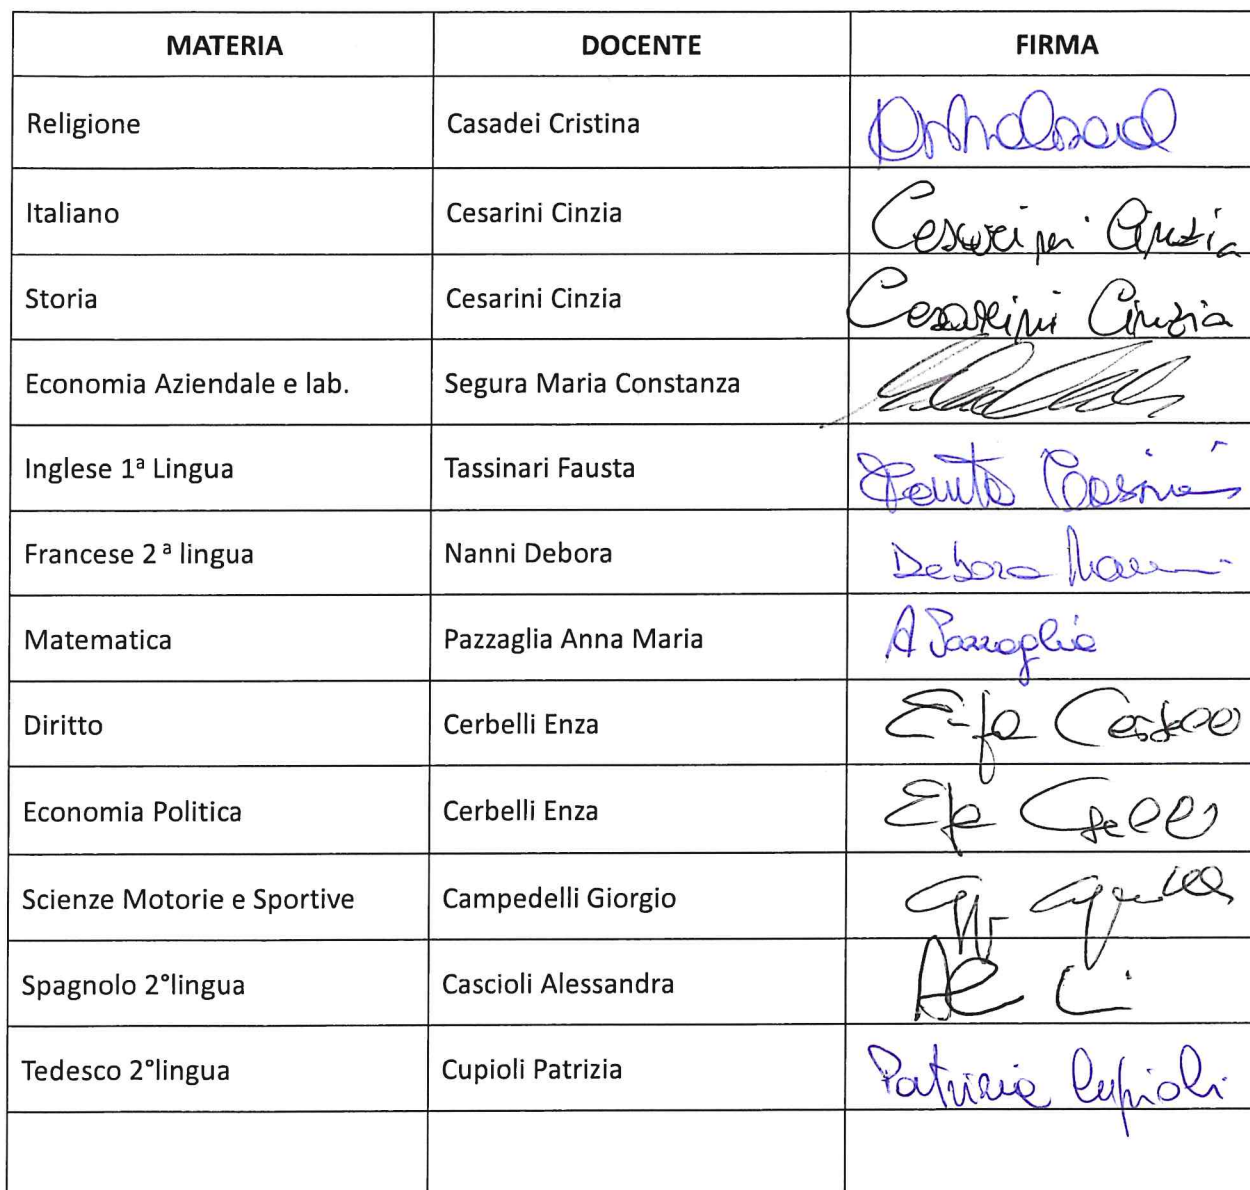 MATERIA DOCENTE FIRMA
Religione Casadei Cristina
Italiano Cesarini Cinzia Cesarini Cinzia
Storia Cesarini Cinzia Cesarini Cinzia
Economia Aziendale e lab. Segura Maria Constanza
Inglese 1ª Lingua Tassinari Fausta
Francese 2 ª lingua Nanni Debora Debora Nanni
Matematica Pazzaglia Anna Maria A Pazzaglia
Diritto Cerbelli Enza
Economia Politica Cerbelli Enza
Scienze Motorie e Sportive Campedelli Giorgio
Spagnolo 2°lingua Cascioli Alessandra
Tedesco 2°lingua Cupioli Patrizia Patrizia Cupioli